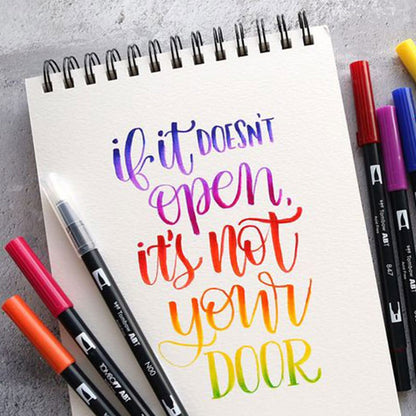 if it DOESN'T
open,
it's not
your
DOOR
Tombow ABT
N00
TOMBOW ABT
Tombow ABT
847